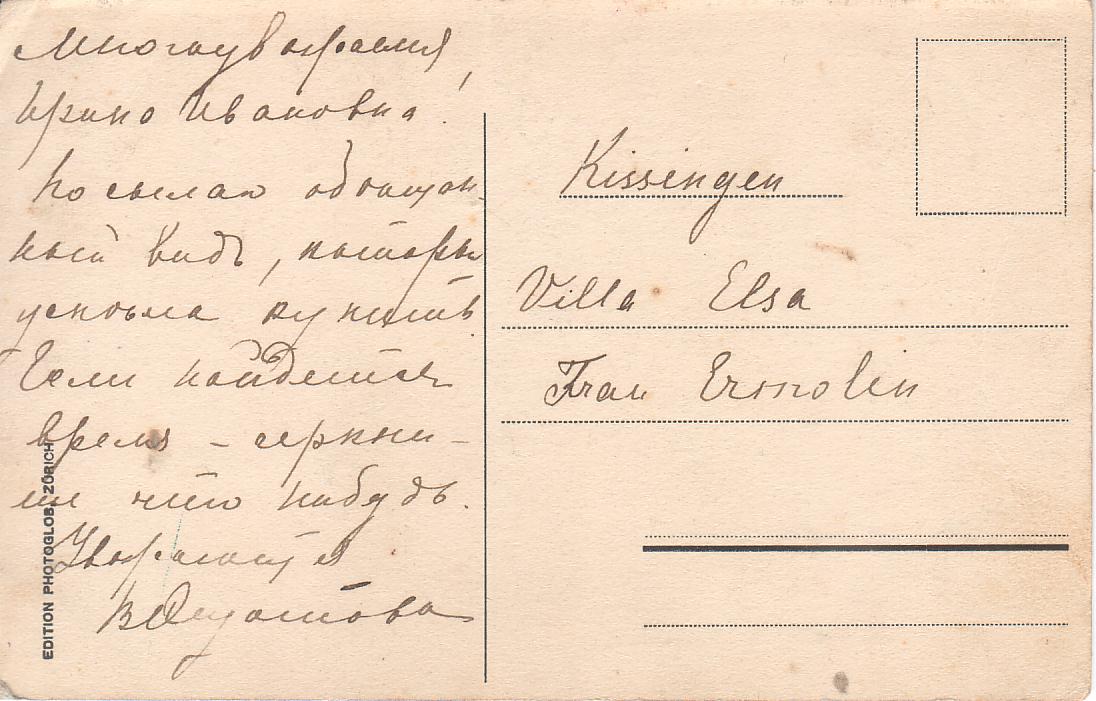 Многоуважаемая,
Ирина Ивановна!
Посылаю обещан-
ный видъ, который
успѣла купить
Если найдется
время – черкни-
те что нибудь.
Уважающая
В
Kissingen
Villa Elsa
Frau Ermolin
EDITION PHOTOGLOB, ZÜRICH